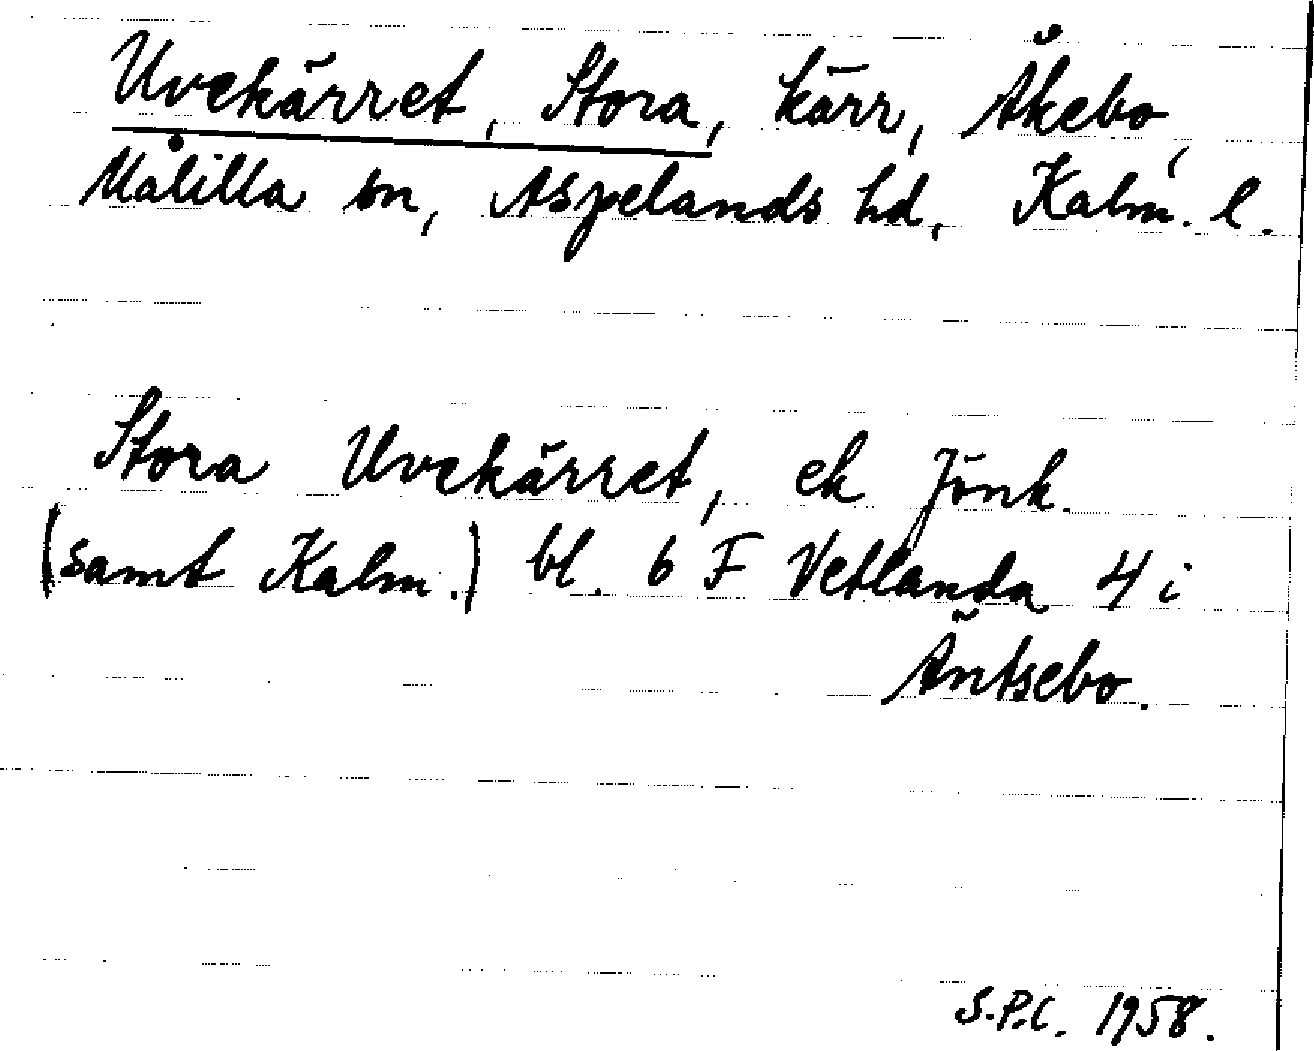 Uvekärret, Stora, kärr, Åkebo,
Målilla sn, Aspelands hd, Kalm. l.
Stora Uvekärret, ek Jönk.
(samt Kalm.) bl. 6 F Vetlanda 4 i
Äntsebo.
S.P.C. 1958.